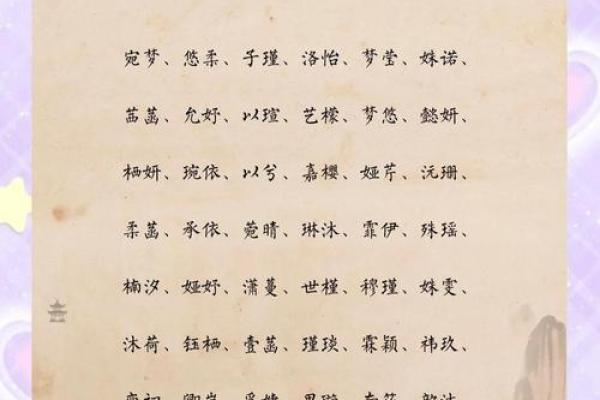 宛梦、悠柔、子瑾、洛怡、梦莹、姝诺、
茁菡、允妤、以瑄、艺檬、梦悠、懿妍、
栖妍、琬依、以兮、嘉樱、娅芹、沅珊、
柔菡、承依、菀晴、琳沐、霏伊、殊瑶、
楠汐、娅妤、潇蔓、世槿、穆瑾、姝雯、
沐荷、钰栖、壹菡、瑾琰、霖颖、祎玖、